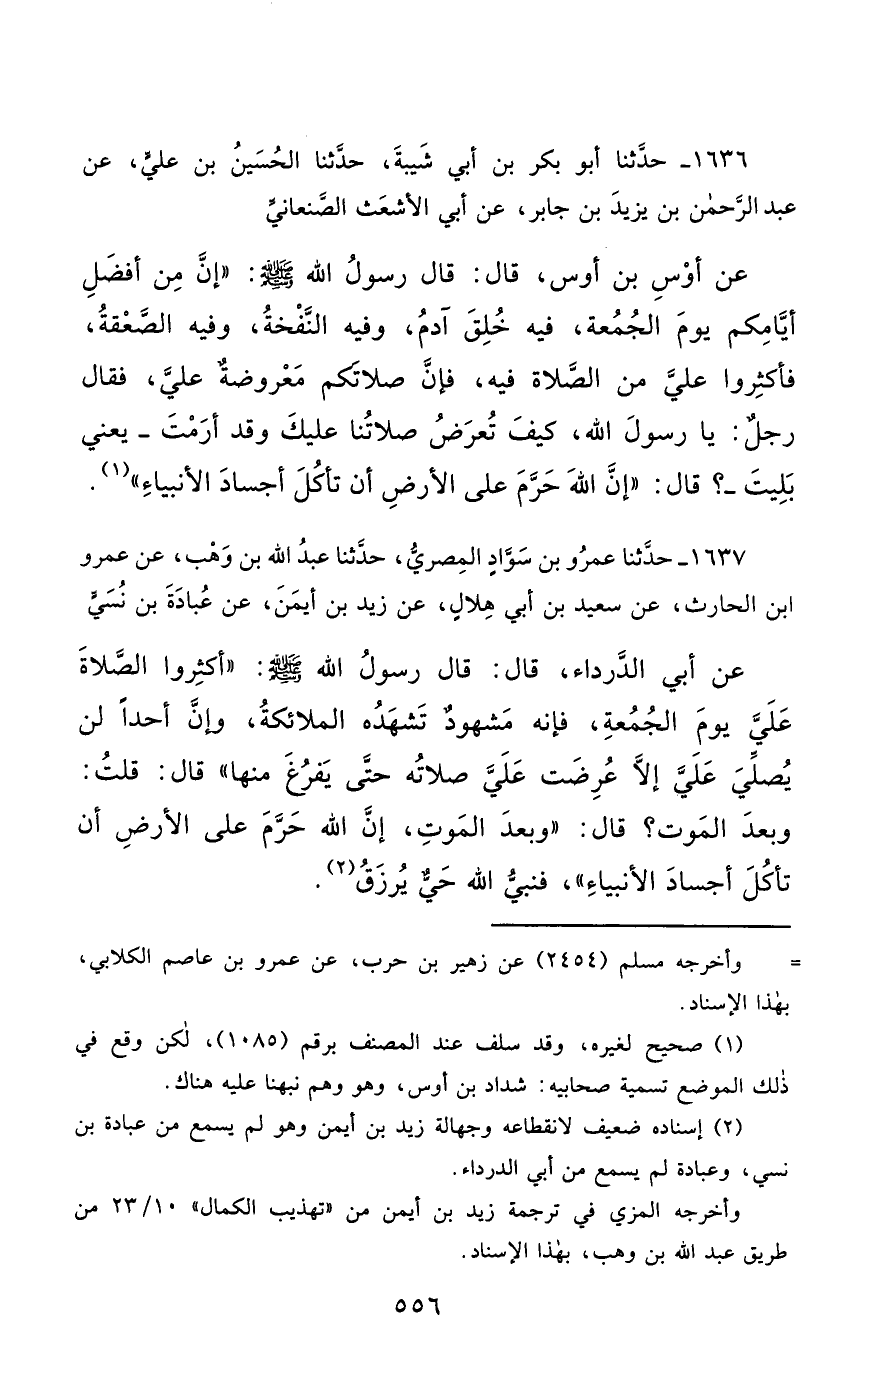 ١٦٣٦ـ حدَّثنا أبو بكر بن أبي شَيبةَ، حدَّثنا الحُسَينُ بن عليٍّ، عن
عبد الرَّحمٰن بن يزيدَ بن جابر، عن أبي الأشعَث الصَّنعانيِّ
عن أوْسِ بن أوس، قال: قال رسولُ الله ﷺ: «إنَّ مِن أفضَلِ
أيَّامِكم يومَ الجُمُعة، فيه خُلِقَ آدمُ، وفيه النَّفْخةُ، وفيه الصَّعْقةُ،
فأكثِروا عليَّ من الصَّلاة فيه، فإنَّ صلاتَكم مَعْروضةٌ عليَّ، فقال
رجلٌ: يا رسولَ الله، كيفَ تُعرَضُ صلاتُنا عليكَ وقد أرَمْتَ ـ يعني
بَلِيتَ ـ؟ قال: «إنَّ اللهَ حَرَّمَ على الأرضِ أن تأكُلَ أجسادَ الأنبياءِ»(١).
١٦٣٧ـ حدَّثنا عمرُو بن سَوَّادٍ المِصريُّ، حدَّثنا عبدُ الله بن وَهْب، عن عمرو
ابن الحارث، عن سعيد بن أبي هِلالٍ، عن زيد بن أيمَنَ، عن عُبادَةَ بن نُسَيٍّ
عن أبي الدَّرداء، قال: قال رسولُ الله ﷺ: «أكثِروا الصَّلاةَ
عَلَيَّ يومَ الجُمُعةِ، فإنه مَشهودٌ تَشهَدُه الملائكةُ، وإنَّ أحداً لن
يُصلِّيَ عَلَيَّ إلاَّ عُرِضَت عَلَيَّ صلاتُه حتَّى يَفرُغَ منها» قال: قلتُ:
وبعدَ المَوت؟ قال: «وبعدَ الموتِ، إنَّ الله حَرَّمَ على الأرضِ أن
تأكُلَ أجسادَ الأنبياءِ»، فنبيُّ الله حَيٌّ يُرزَقُ(٢).
= وأخرجه مسلم (٢٤٥٤) عن زهير بن حرب، عن عمرو بن عاصم الكلابي،
بهٰذا الإسناد.
(١) صحيح لغيره، وقد سلف عند المصنف برقم (١٠٨٥)، لٰكن وقع في
ذٰلك الموضع تسمية صحابيه: شداد بن أوس، وهو وهم نبهنا عليه هناك.
(٢) إسناده ضعيف لانقطاعه وجهالة زيد بن أيمن وهو لم يسمع من عبادة بن
نسي، وعبادة لم يسمع من أبي الدرداء.
وأخرجه المزي في ترجمة زيد بن أيمن من «تهذيب الكمال» ٢٣/١٠ من
طريق عبد الله بن وهب، بهٰذا الإسناد.
٥٥٦